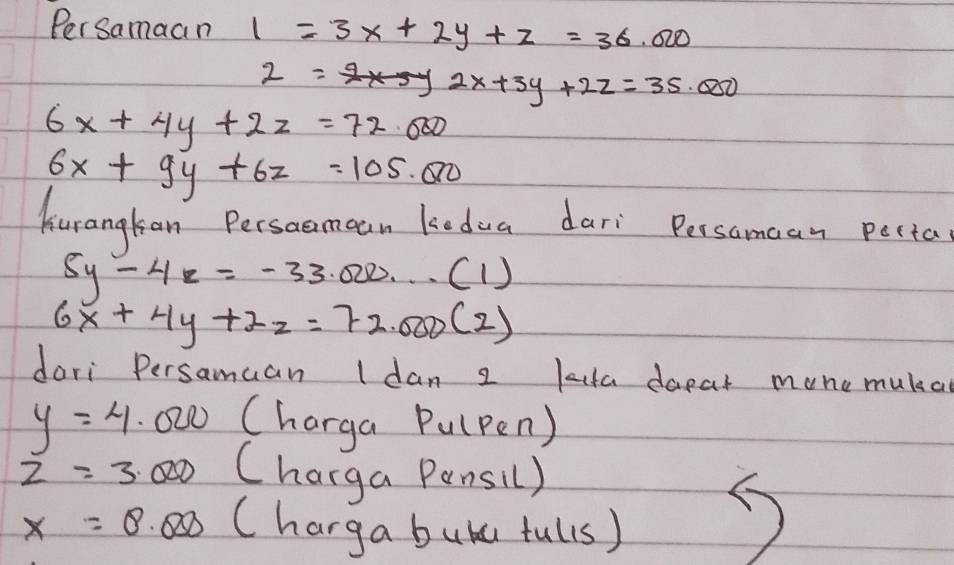 Persamaan 1 = 3x + 2y + z = 36.000
2 = 2x 3y 2x + 3y + 2z = 35.000
6x + 4y + 2z = 72.000
6x + 9y + 6z = 105.000
kurangkan Persaamaan kedua dari Persamaan perta
5y - 4z = -33.000... (1)
6x + 4y + 2z = 72.000 (2)
dari Persamaan 1 dan 2 kita dapat menemukan
y = 4.000 (harga Pulpen)
z = 3.000 (harga Pensil)
x = 8.000 (harga buku tulis)